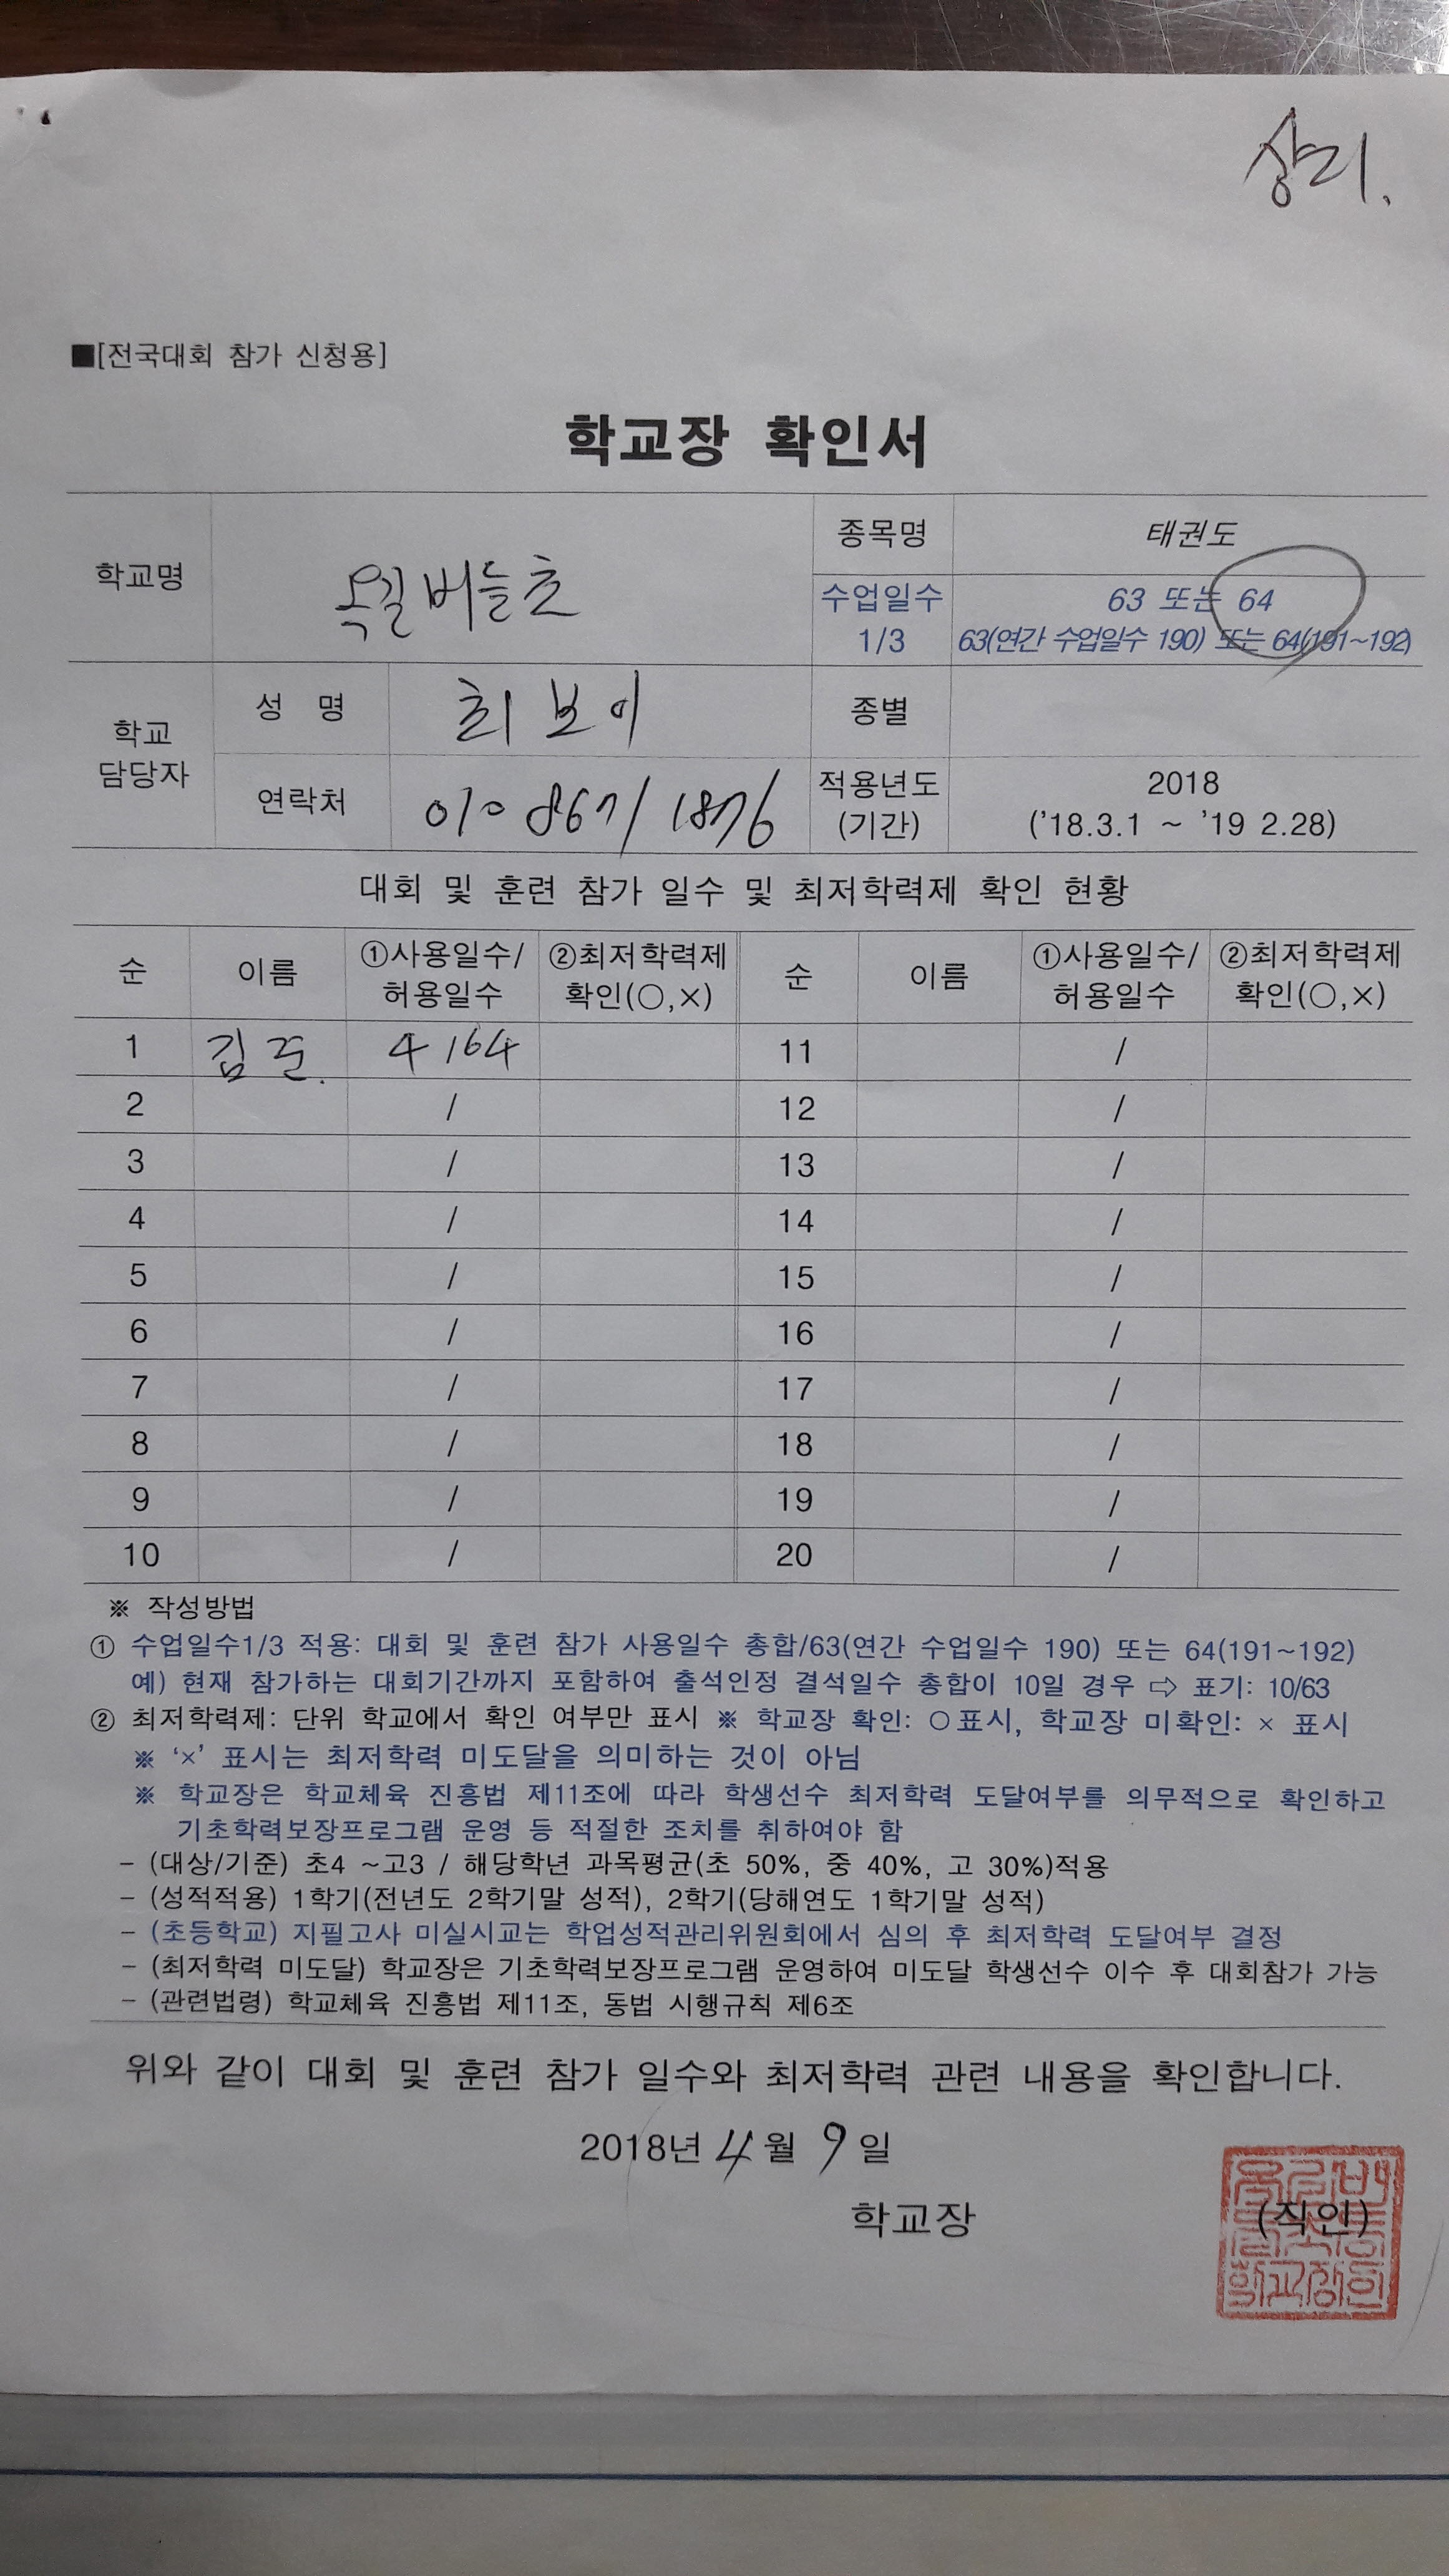 상리.
■[전국대회 참가 신청용]
학교장 확인서
학교명 옥길버들초 종목명 태권도
수업일수 1/3 63 또는 64
63(연간 수업일수 190) 또는 64(191~192)
학교 담당자 성 명 최보이 종별
연락처 010 8671 1876 적용년도 (기간) 2018
('18.3.1 ~ '19 2.28)
대회 및 훈련 참가 일수 및 최저학력제 확인 현황
순 이름 ①사용일수/허용일수 ②최저학력제 확인(○,×) 순 이름 ①사용일수/허용일수 ②최저학력제 확인(○,×)
1 김준. 4/64 11 /
2 / 12 /
3 / 13 /
4 / 14 /
5 / 15 /
6 / 16 /
7 / 17 /
8 / 18 /
9 / 19 /
10 / 20 /
※ 작성방법
① 수업일수1/3 적용: 대회 및 훈련 참가 사용일수 총합/63(연간 수업일수 190) 또는 64(191~192)
예) 현재 참가하는 대회기간까지 포함하여 출석인정 결석일수 총합이 10일 경우 ⇨ 표기: 10/63
② 최저학력제: 단위 학교에서 확인 여부만 표시 ※ 학교장 확인: ○표시, 학교장 미확인: × 표시
※ '×' 표시는 최저학력 미도달을 의미하는 것이 아님
※ 학교장은 학교체육 진흥법 제11조에 따라 학생선수 최저학력 도달여부를 의무적으로 확인하고
기초학력보장프로그램 운영 등 적절한 조치를 취하여야 함
- (대상/기준) 초4 ~고3 / 해당학년 과목평균(초 50%, 중 40%, 고 30%)적용
- (성적적용) 1학기(전년도 2학기말 성적), 2학기(당해연도 1학기말 성적)
- (초등학교) 지필고사 미실시교는 학업성적관리위원회에서 심의 후 최저학력 도달여부 결정
- (최저학력 미도달) 학교장은 기초학력보장프로그램 운영하여 미도달 학생선수 이수 후 대회참가 가능
- (관련법령) 학교체육 진흥법 제11조, 동법 시행규칙 제6조
위와 같이 대회 및 훈련 참가 일수와 최저학력 관련 내용을 확인합니다.
2018년 4월 9일
학교장 (직인)
옥길버
들초등
학교장인